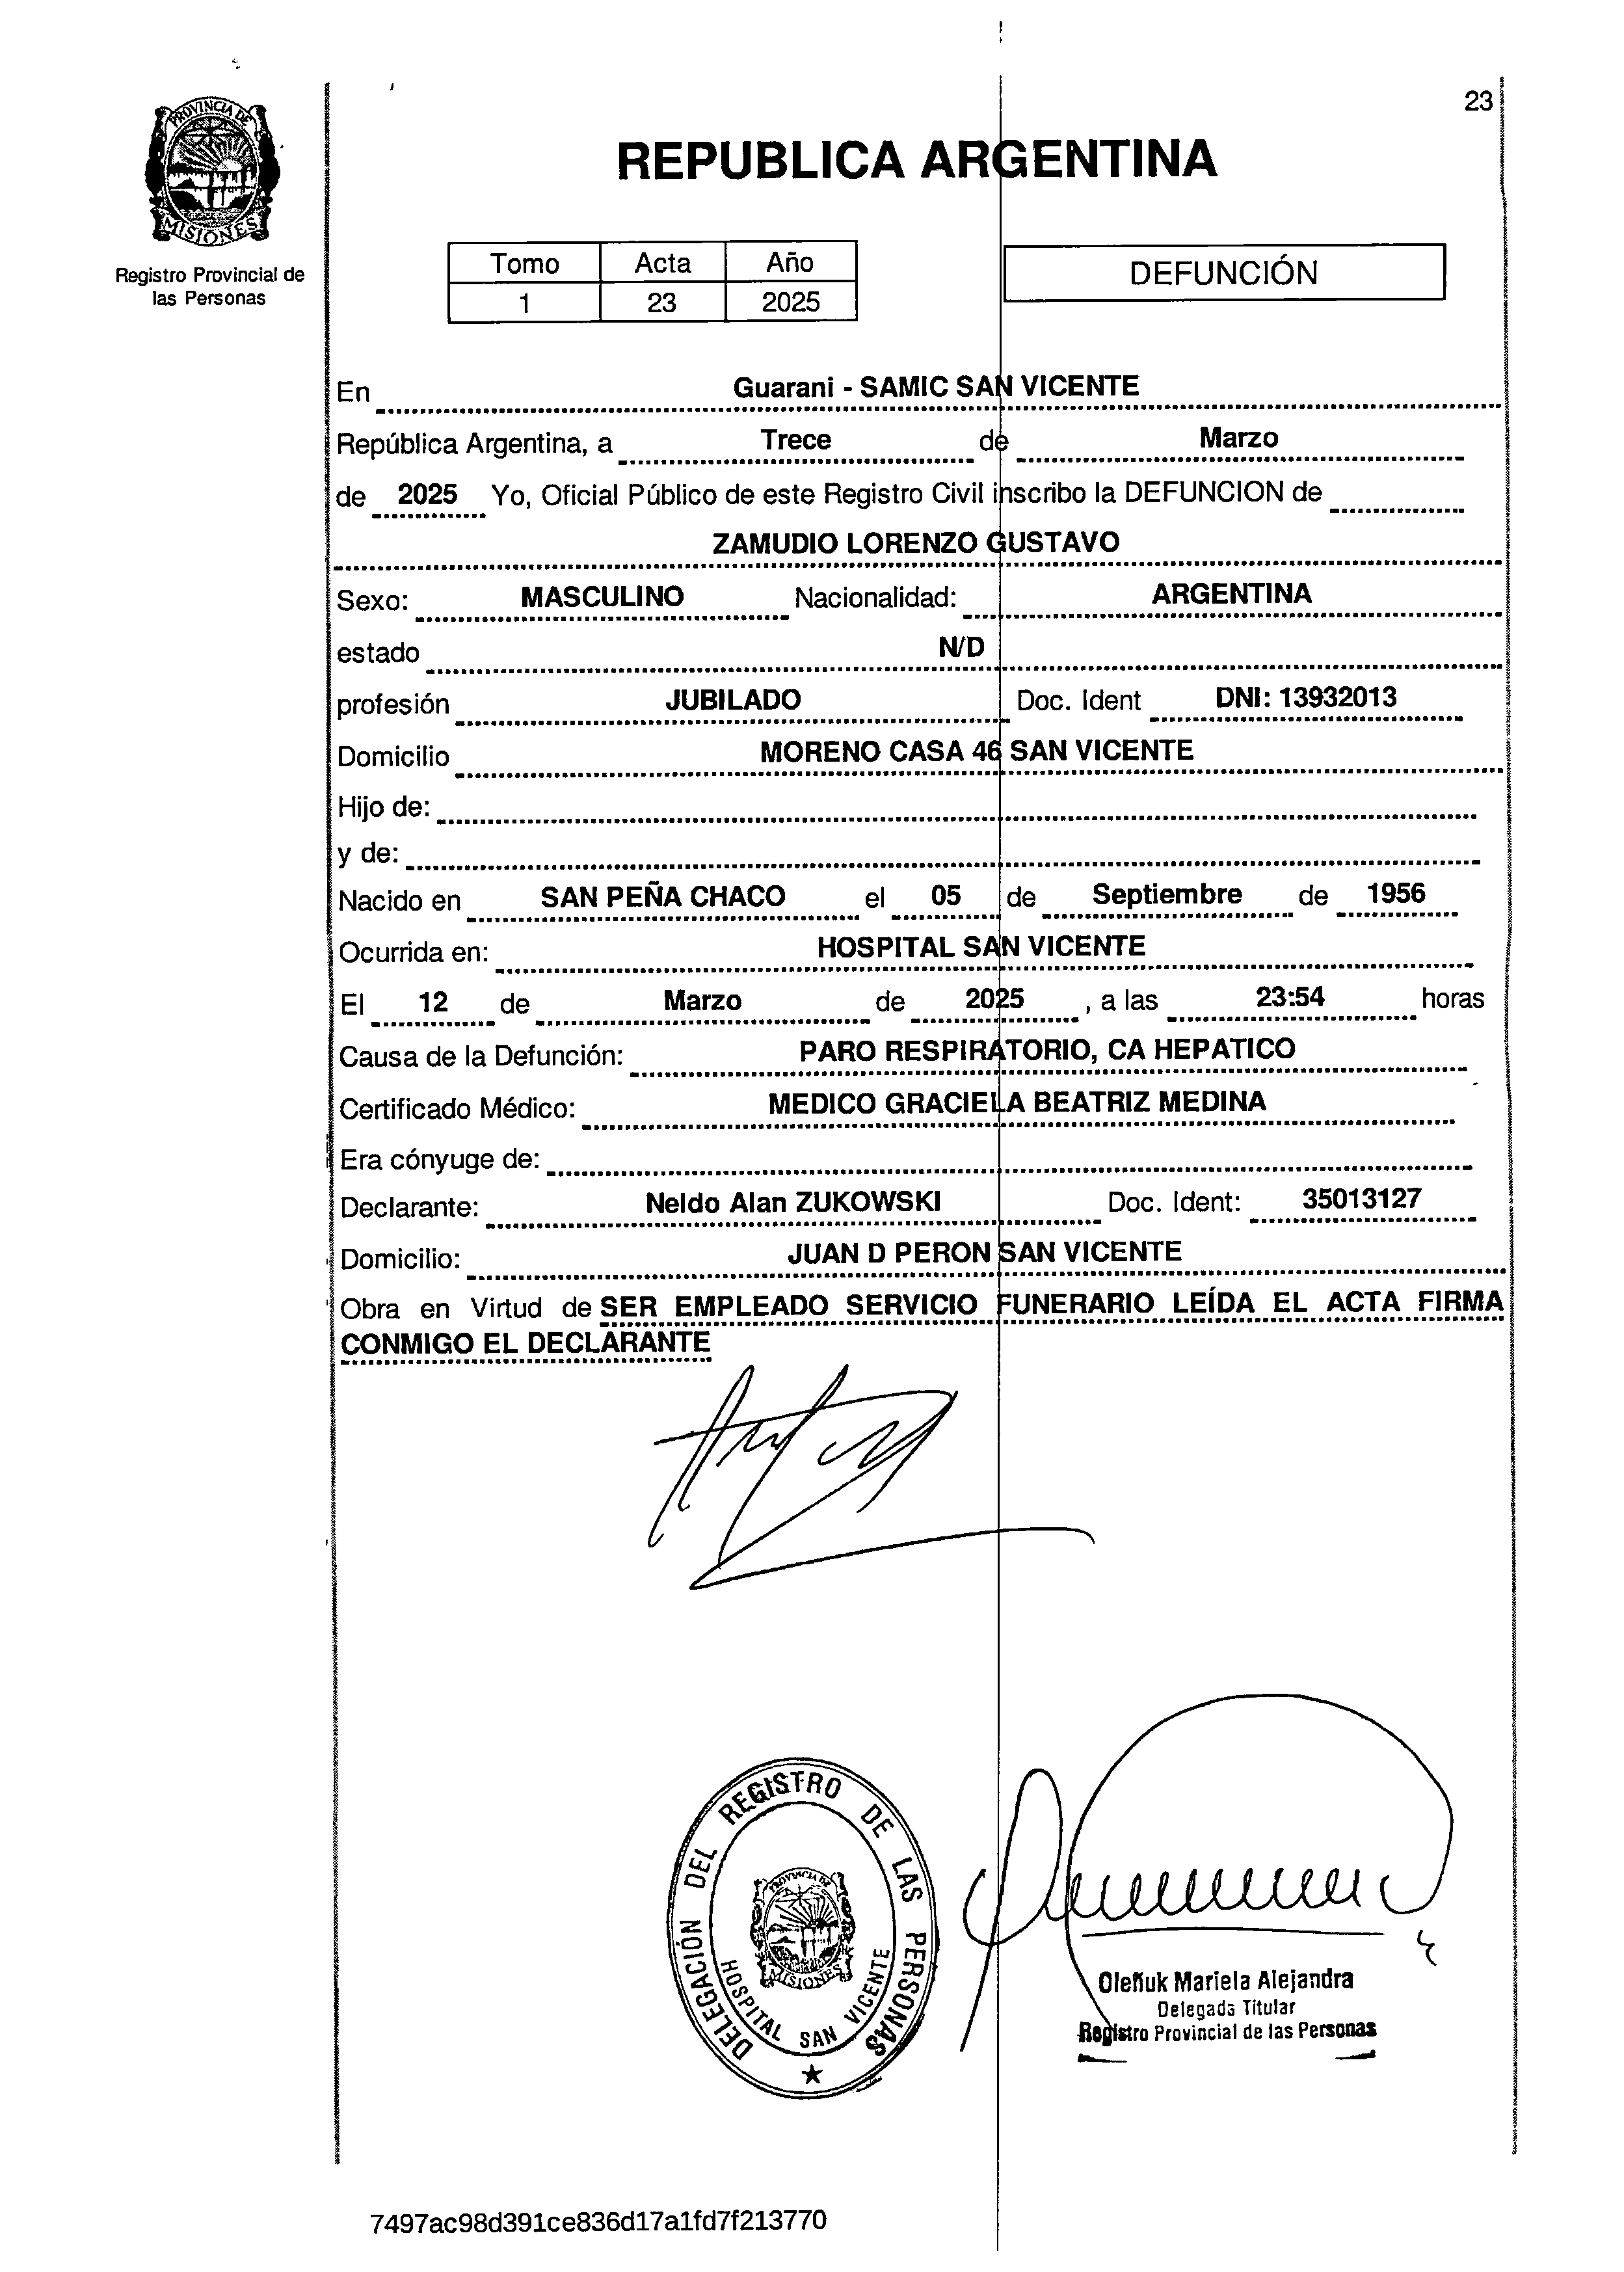 23
PROVINCIA DE
MISIONES
Registro Provincial de
las Personas
REPUBLICA ARGENTINA
Tomo Acta Año
1 23 2025
DEFUNCIÓN
En Guarani - SAMIC SAN VICENTE
República Argentina, a Trece de Marzo
de 2025 Yo, Oficial Público de este Registro Civil inscribo la DEFUNCION de
ZAMUDIO LORENZO GUSTAVO
Sexo: MASCULINO Nacionalidad: ARGENTINA
estado N/D
profesión JUBILADO Doc. Ident DNI: 13932013
Domicilio MORENO CASA 46 SAN VICENTE
Hijo de:
y de:
Nacido en SAN PEÑA CHACO el 05 de Septiembre de 1956
Ocurrida en: HOSPITAL SAN VICENTE
El 12 de Marzo de 2025 , a las 23:54 horas
Causa de la Defunción: PARO RESPIRATORIO, CA HEPATICO
Certificado Médico: MEDICO GRACIELA BEATRIZ MEDINA
Era cónyuge de:
Declarante: Neldo Alan ZUKOWSKI Doc. Ident: 35013127
Domicilio: JUAN D PERON SAN VICENTE
Obra en Virtud de SER EMPLEADO SERVICIO FUNERARIO LEÍDA EL ACTA FIRMA
CONMIGO EL DECLARANTE
DELEGACIÓN DEL REGISTRO DE LAS PERSONAS
PROVINCIA DE
MISIONES
HOSPITAL SAN VICENTE
Oleñuk Mariela Alejandra
Delegada Titular
Registro Provincial de las Personas
7497ac98d391ce836d17a1fd7f213770